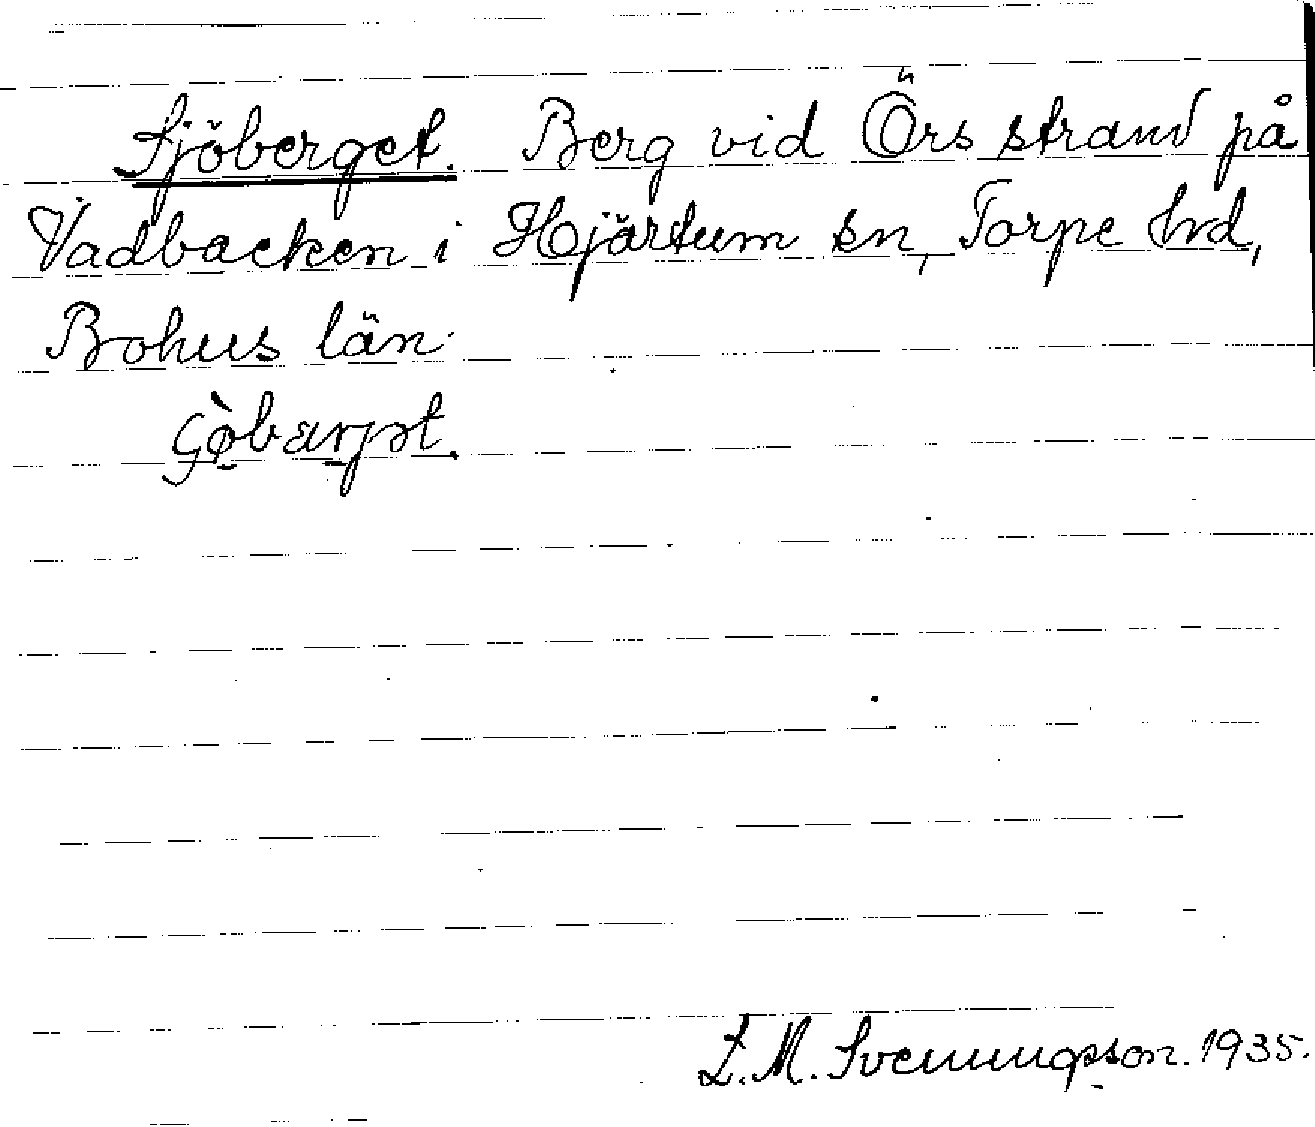 Sjöberget. Berg vid Örs strand på
Vadbacken i Hjärtum sn, Torpe hrd,
Bohus län.
L. M. Svenungsson. 1935.